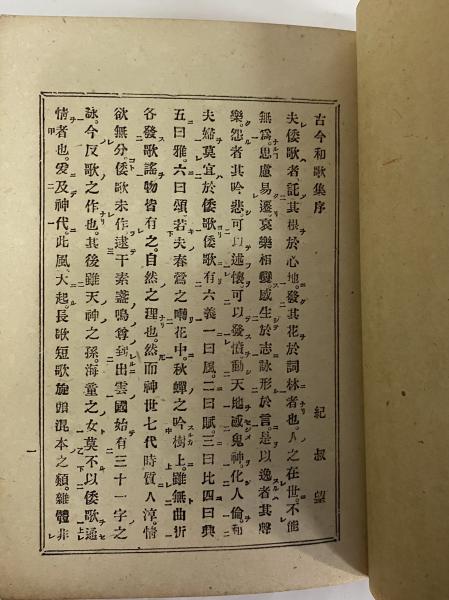 古今和歌集序
紀叔望
夫倭歌者。託其根於心地。發其花於詞林者也。人之在世。不能
無爲。思慮易遷。哀樂相變。感生於志。詠形於言。是以逸者其聲
樂。怨者其吟悲。可以述懷。可以發憤。動天地。感鬼神。化人倫。和
夫婦。莫宜於倭歌。倭歌有六義。一曰風。二曰賦。三曰比。四曰興
五曰雅。六曰頌。若夫春鶯之囀花中。秋蟬之吟樹上。雖無曲折
各發歌謠。物皆有之。自然之理也。然而神世七代。時質人淳。情
欲無分。倭歌未作。逮于素盞嗚尊。到出雲國。始有三十一字之
詠。今反歌之作也。其後雖天神之孫。海童之女。莫不以倭歌通
情者也。爰及神代。此風大起。長歌短歌旋頭混本之類。雜體非
一